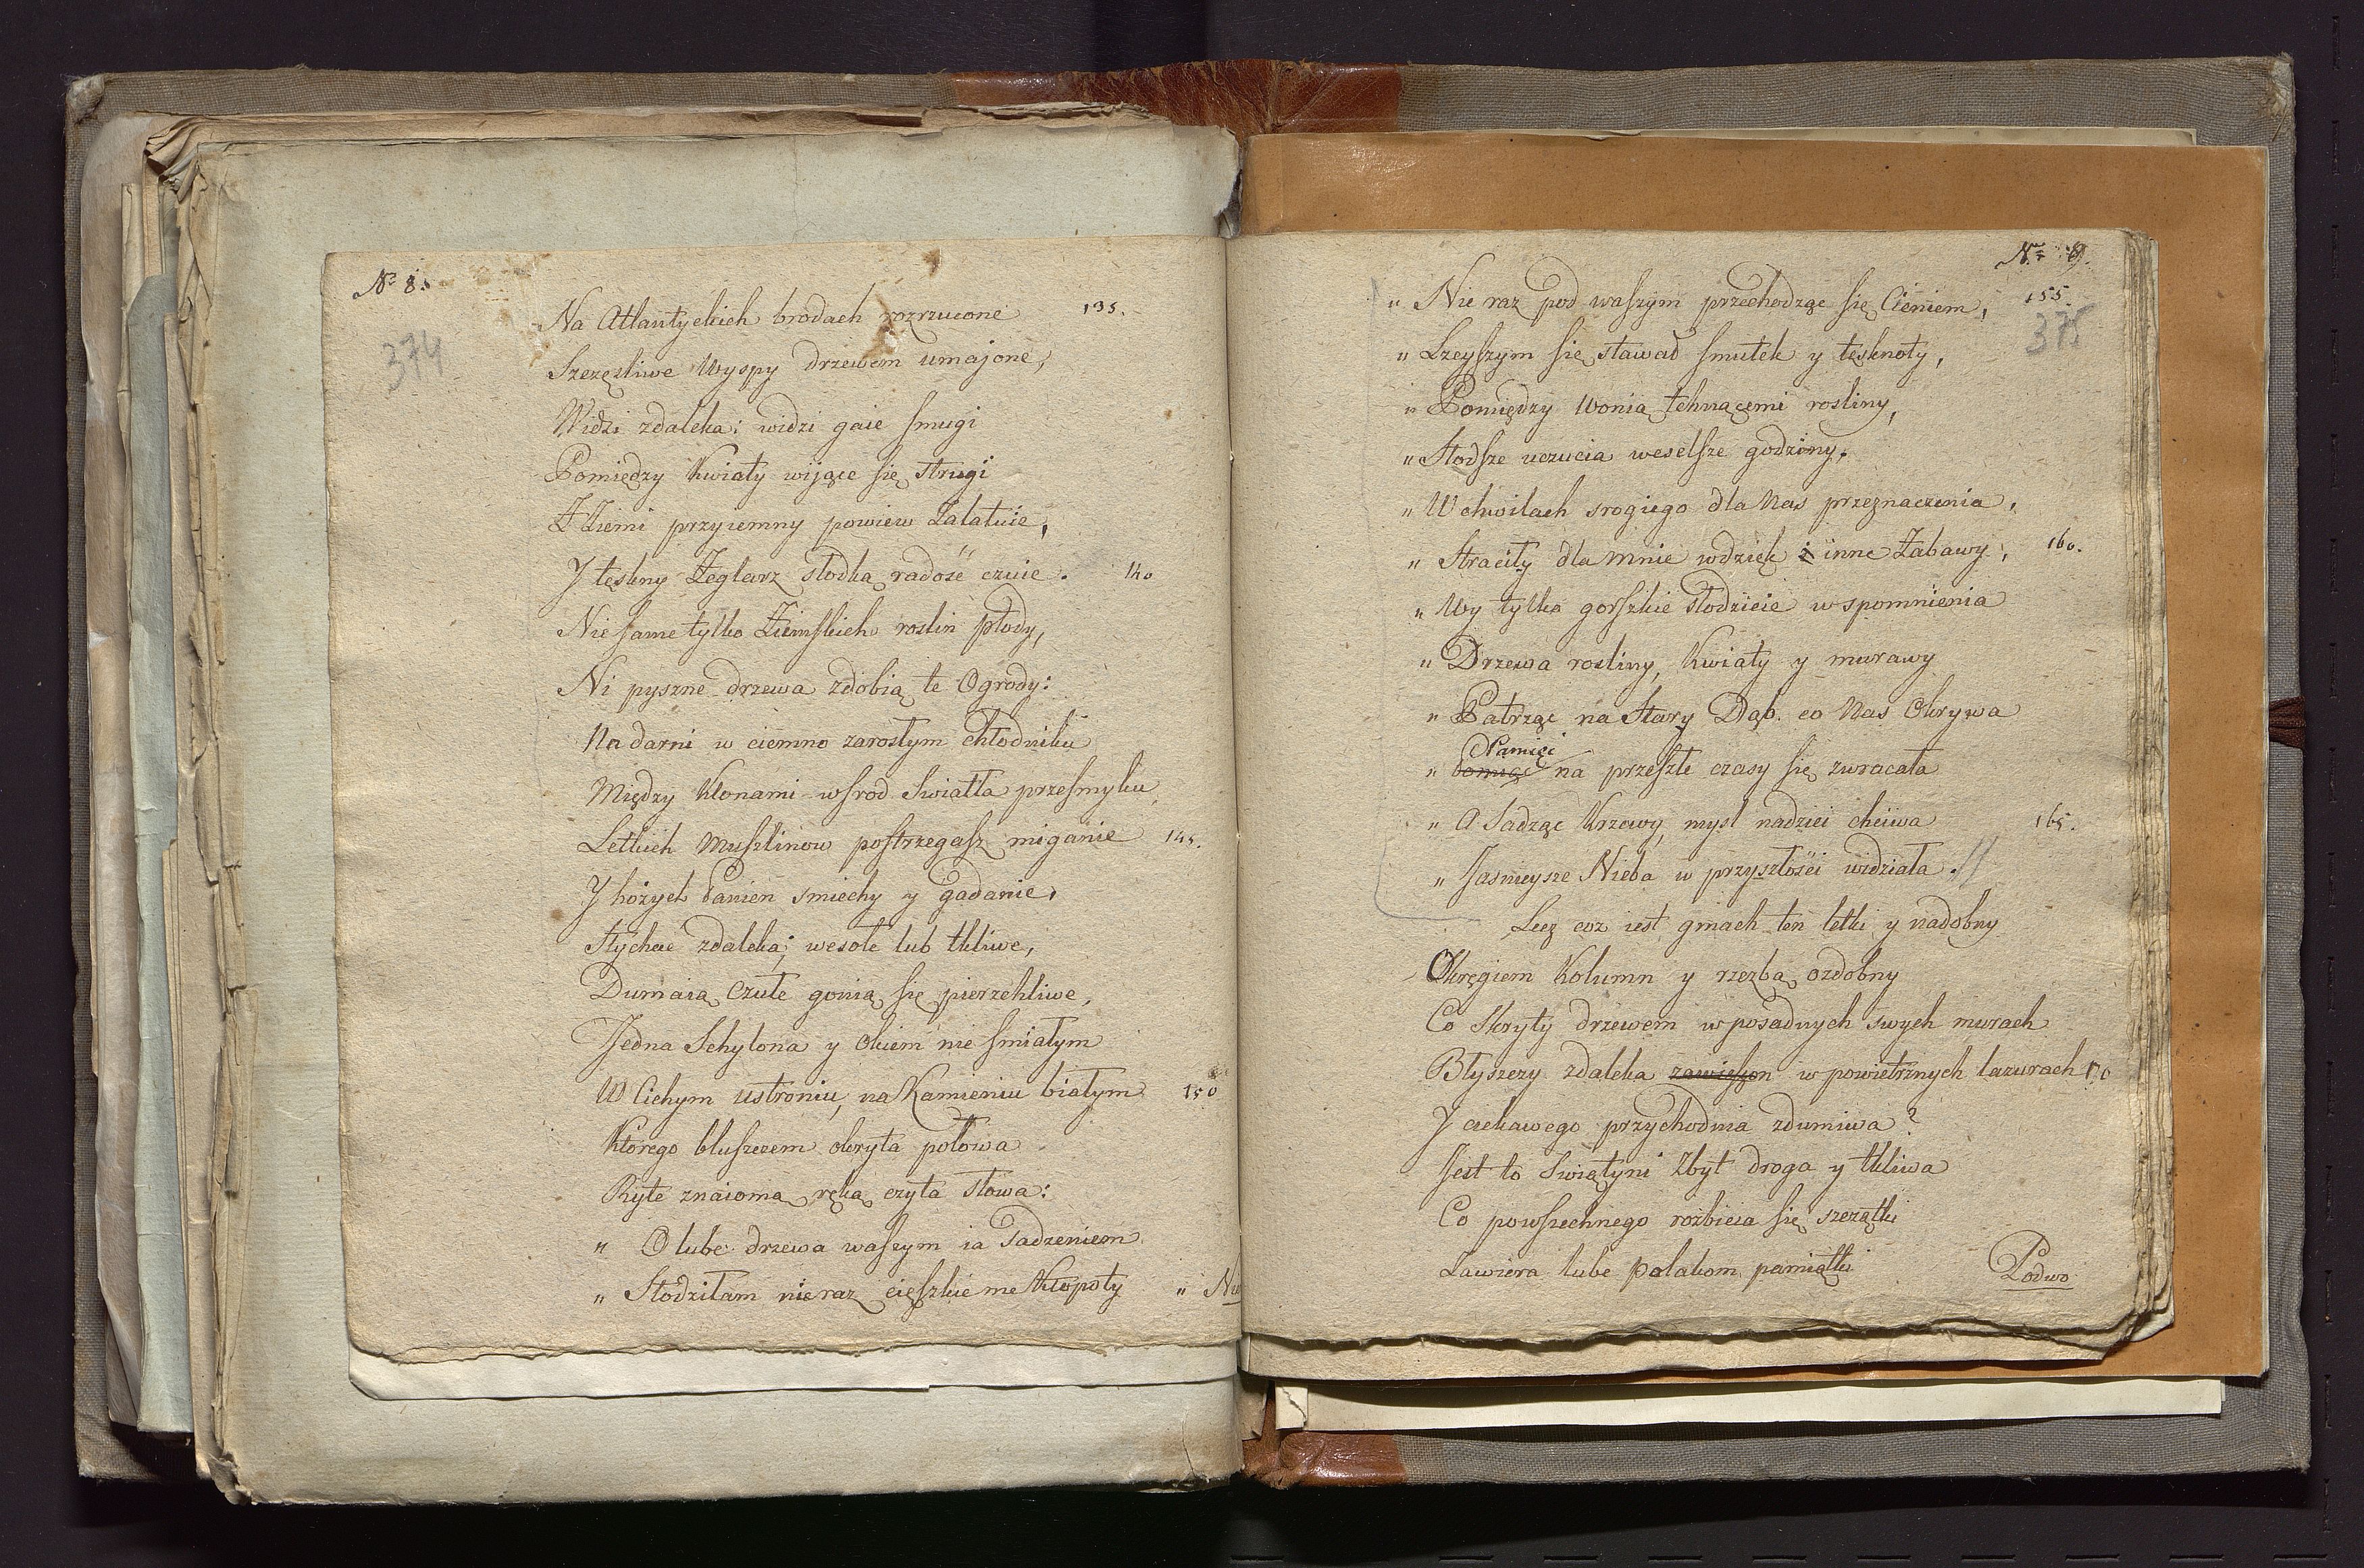 Nº 8.
374
Na Atlantyckich brodach rozrzucone 135.
Szczęsliwe Wyspy drzewem umajone,
Widzi zdaleka: widzi gaie smugi
Pomiędzy Kwiaty wijące się strugi
Z Ziemi przyiemny powiew Zalatuie,
Y tęskny Żeglarz słodką radość czuie. 140
Nie same tylko Ziemskich roslin płody,
Ni pyszne drzewa zdobią te Ogrody:
Na darni w ciemno zarosłym chłodniku
Między Klonami wsrod Swiatła przesmyku
Letkich Muszlinow postrzegasz miganie 145.
Y hożych Panien smiechy y gadanie,
Słychać zdaleka; wesołe lub tkliwe,
Dumaią czułe gonią się pierzchliwe,
Jedna Schylona y Okiem nie smiałym
W Cichym ustroniu, na Kamieniu białym 150
Ktorego bluszczem okryta połowa
Ryte znaioma ręką czyta słowa:
" O lube drzewa waszym ia Sadzeniem
" Słodziłam nieraz cięszkie me kłopoty
" Nie
Nº 9.
" Nie raz pod waszym przechodząc się Cieniem, 155.
375
" Lzeyszym się stawał smutek y tęsknoty,
" Pomiędzy Wonią tchnącemi rosliny,
" Słodsze uczucia weselsze godziny.
" W chwilach srogiego dla Nas przeznaczenia,
" Straciły dla mnie wdzięk i inne Zabawy, 160.
" Wy tylko gorszkie słodzicie wspomnienia
" Drzewa rosliny, Kwiaty y murawy
" Patrząc na Stary Dąb. co Nas Okrywa
Pamięć
" na przeszłe czasy się zwracała
" A Sadząc Krzewy, mysl nadziei chciwa 165.
" Jasnieysze Nieba w przyszłości widziała.
Lecz coz iest gmach ten letki y nadobny
Okręgiem Kolumn y rzezbą ozdobny
Co Skryty drzewem w posadnych swych murach
Błyszczy zdaleka zawieszon w powietrznych lazurach 170
Y ciekawego przychodnia zdumiwa?
Jest to Swiątyni Zbyt droga y tkliwa
Co powszechnego rozbicia się szczątki
Zawiera lube polakom pamiątki
Podwo